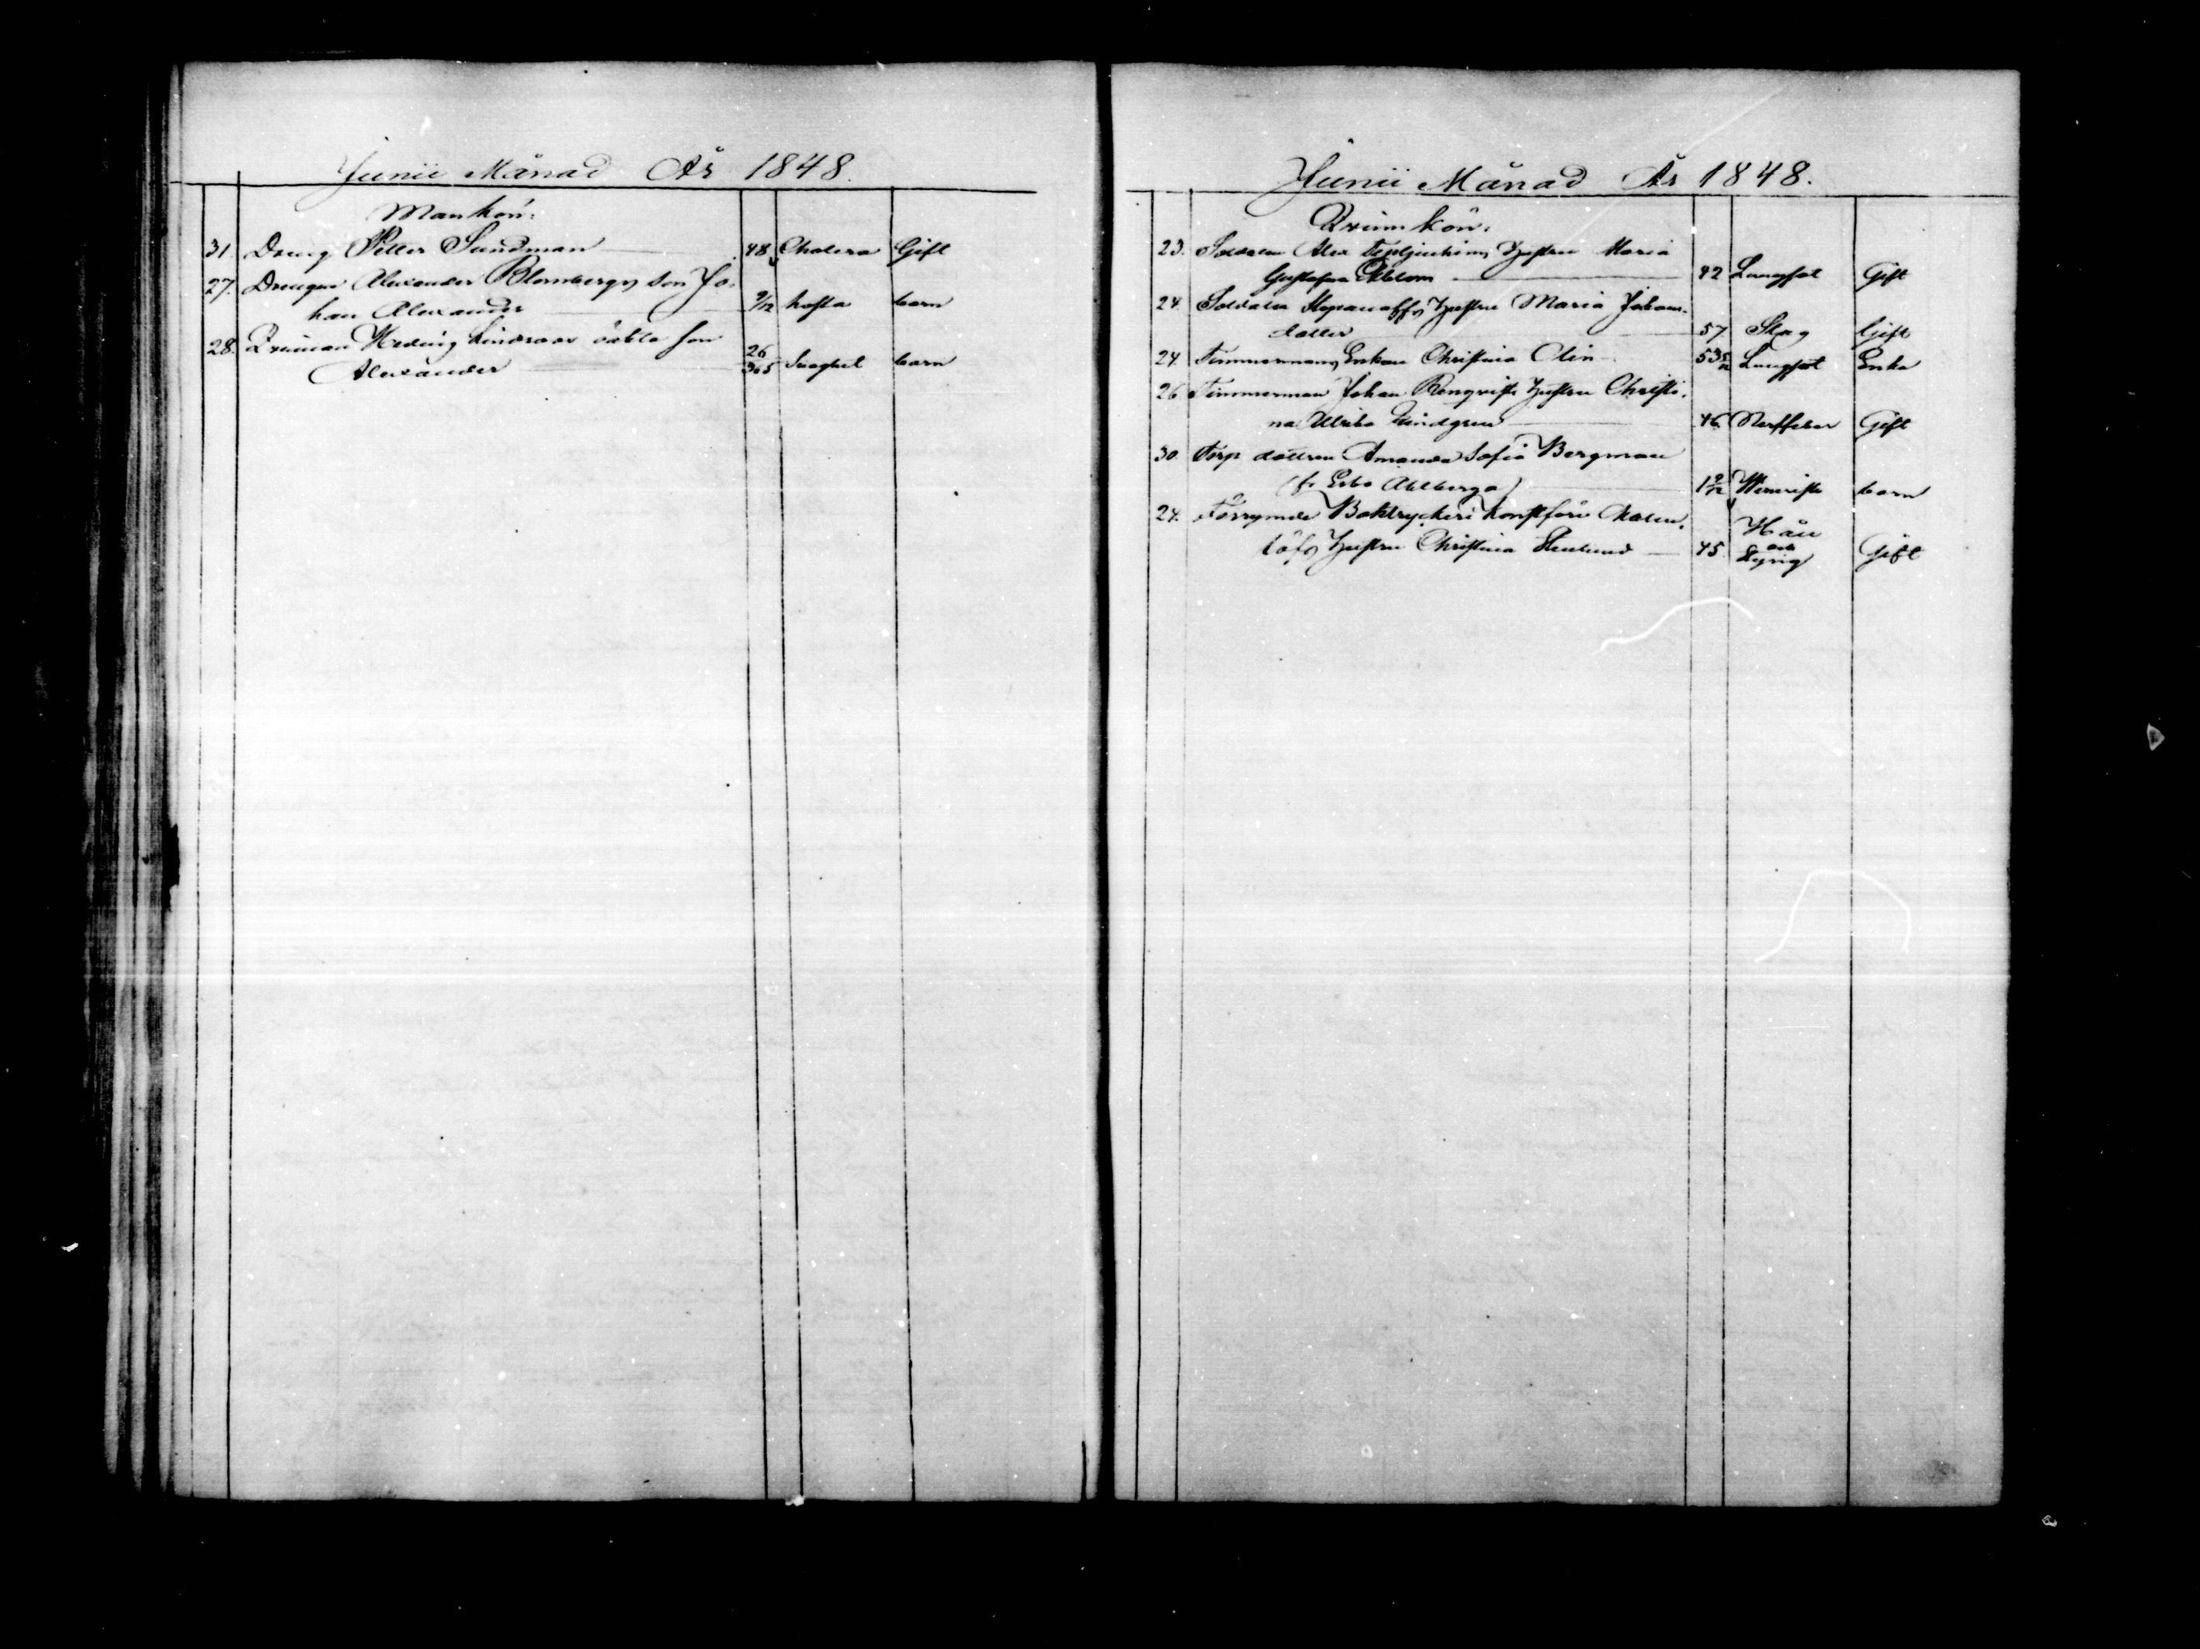 Junii Månad År 1848.
Mankön:
31 Dreng Petter Sundman 48 Cholera Gift
27. Drengen Alexander Blombergs son Jo-
han Alexander 9/12 hosta barn
28. Qvinnan Hedvig Lindroos oäkta son
Alexander 26/365 Barn
Junii Månad År 1848.
Qvinnkön.
23. Soldaten Alex Hustru Maria
Gustafva Ekblom 42 Lungsot Gift
24. Soldaten Stepanoffs Hustru Maria Johans-
dotter 57 Slag Gift
24 Timmermans Enkan Christina Olin 53 5/12 Lungsot Enka
26 Timmerman Johan Renqvists Hustru Christi-
na Ulrika Lindgren 46 Nerffeber Gift
30. Torp dottren Amanda Sofia Bergman
(fr Esbo Alberga) 1 9/12 barn
24. Förrymde Boktryckeri Konstförv
löfs Hustru Christina 45. Håll och Styng Gift